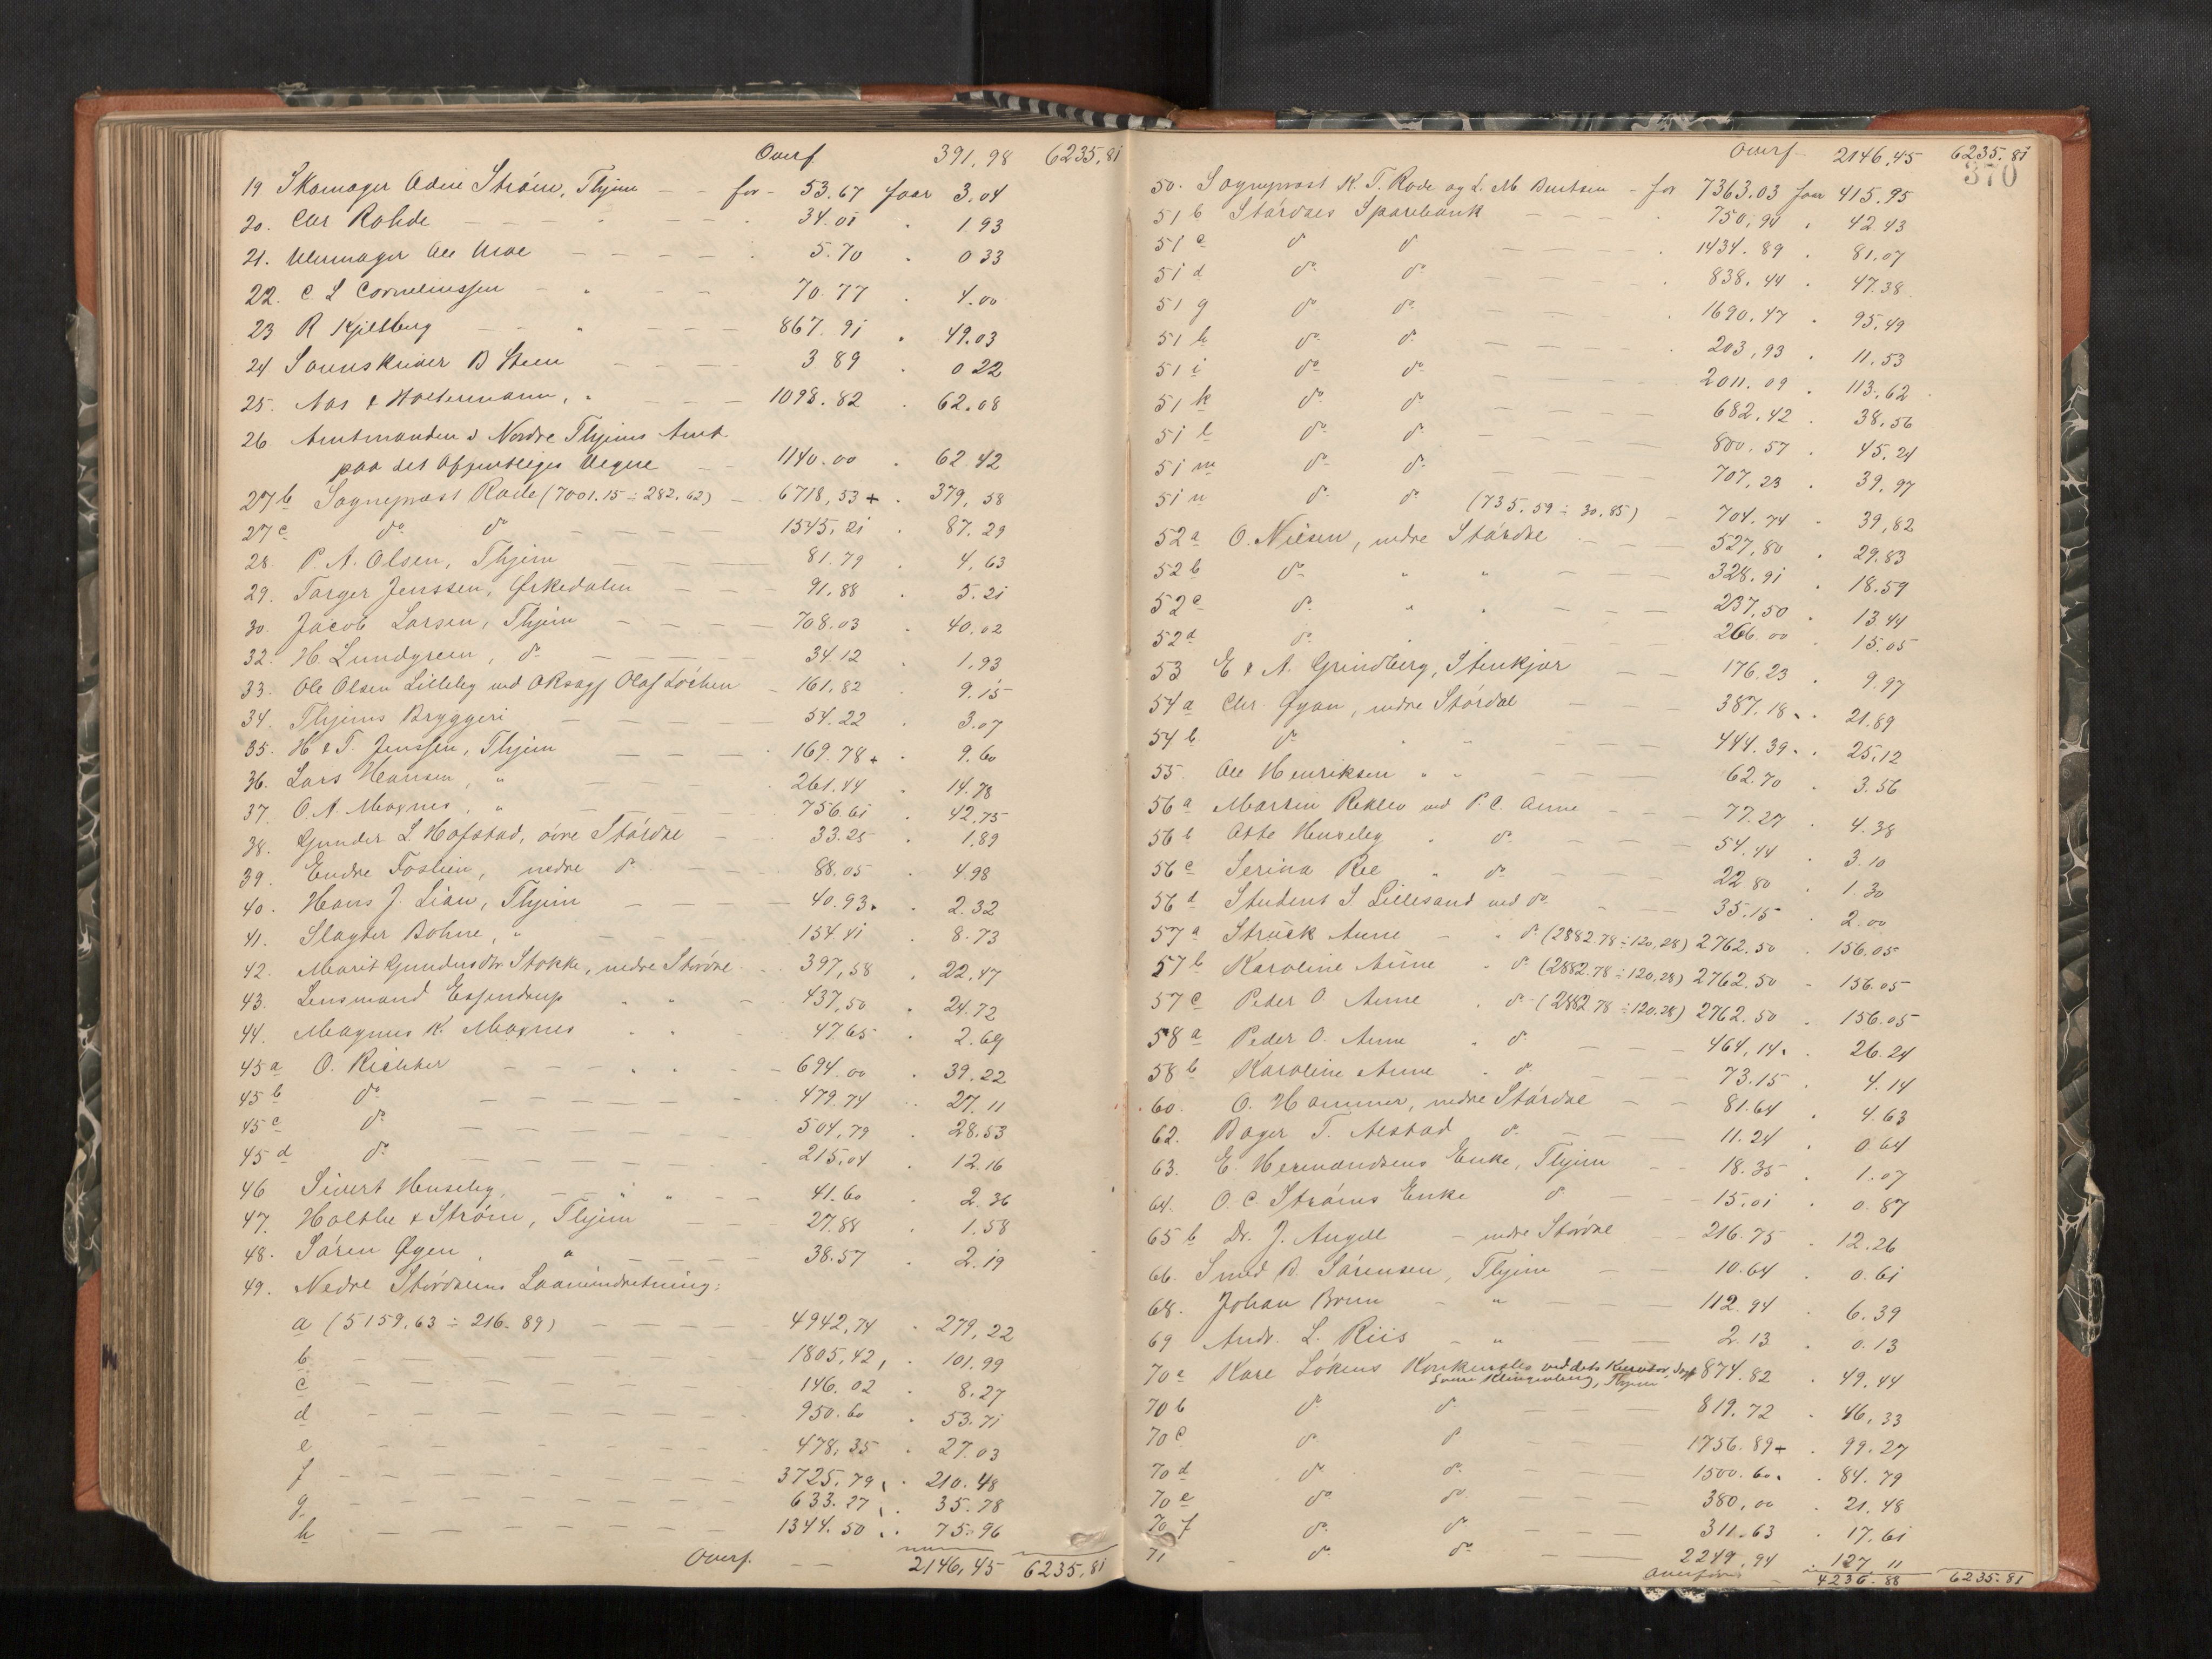 Overf. 391,98 6235,81
19 Skomager Odin Strøm, Thjem — — for - 53.67 faar 3.04
20. Chr Rohde — — — 34.01 . 1.93
21. Uhrmager Ole Moe — — — 5.70 . 0 33
22. C. L Corneliussen — " — — 70.77 . 4.00
23 R Kjeldberg — — " — — — 867.91 . 49.03
24 Sorenskriver B Steen — — — 3 89 . 0 22
25. Aas & Holtermann, " — — — 1098.82 . 62.08
26 Amtmanden i Nordre Thjems Amt
paa det Offentliges Vegne — 1140.00 . 62.42
27 b Sognepræst Rode (7001.15 ÷ 282.62) — 6718,53 + . 379,58
27 c do do — — — — 1545,21 . 87.29
28. P. A. Olsen, Thjem — — — 81.79 . 4,63
29. Torger Jenssen, Ørkedalen — — — 91.88 . 5.21
30. Jacob Larsen, Thjem — — — — 708.03 . 40,02
32. H. Lundgreen, do — — — — — 34.12 . 1,93
33. Ole Olsen Lilleby ved ORsagf Olaf Löchen — 161,82 . 9.15
34. Thjems Bryggeri — — — — 54.22 . 3.07
35. H & T. Jenssen, Thjem — — — . 169.78 + . 9.60
36. Lars Hansen, " — — — 261.44 . 14.78
37. O. A. Moxnes, " — — — 756.61 . 42.75
38. Gunder L. Hofstad, övre Stördal — 33.25 . 1.89
39. Endre Foslien, nedre do — — — 88.05 . 4.98
40. Hans J. Lian, Thjem — — — — 40.93. . 2.32
41. Slagter Bohne, " — — — — 154.41 . 8.73
42. Marit Gundersdtr Stokke, nedre Stördal . . 397,58 . 22.47
43. Lensmand Essendrup " " — 437,50 . 24.72
44. Magnus K. Moxnes . . — 47.65 . 2.69
45 a O. Richter — — — . . — 694.00 . 39.22
45 b do — — — — — — 479.74 . 27.11
45 c do — — — — — — 504,79 . 28.53
45 d do — — — — — — 215.04 . 12.16
46 Sivert Huseby, — — " " — — 41.60 . 2.36
47. Holtbe & Ström, Thjem — — — 27.88 . 1.58
48. Sören Øyen, " — — — 38.57 . 2.19
49. Nedre Stördalens Laaneindretning:
a (5159,63 ÷ 216.89) — — — — 4942,74 . 279,22
b — — — — — — 1805,42, . 101.99
c — — — — — — 146.02 . 8.27
d — — — — — — 950.60 . 53.71
e — — — — — — 478,35 . 27.03
f — — — — — — 3725.79, . 210.48
g — — — — — — 633.27, . 35.78
h — — — — — — 1344.50 . . 75.96
Overf. — — 2146,45 6235,81
Overf — 2146,45 6235.81
370
50. Sognepræst K. T. Rode og L. M Bentsen — for 7363.03 faar 415.95
51 b Stördals Sparebank — — — . 750,94 . 42 43
51 c do do — — — . 1434.89 . 81.07
51 d do do — — — . 838.44 . 47.38
51 g do do — — — . 1690.47 . 95.49
51 h do do — — — . 203,93 . 11.53
51 i do do — — — 2011.09 . 113.62
51 k do do — — — — 682,42 . 38,56
51 l do do — — — — 800.57 . 45,24
51 m do do — — — 707,23 . 39,97
51 n do do (735.59 ÷ 30.85) — 704.74 . 39,82
52 a O. Nilsen, nedre Stördal — — — 527,80 . 29.83
52 b do " " — — — 328.91 . 18.59
52 c do " " — — — 237,50 . 13.44
52 d do — — 266.00 . 15.05
53 E & A. Grindberg, Stenkjær — — 176.23 . 9.97
54 a Chr Øyan, nedre Stördal — — — 387.18. . 21.89
54 b do . " — — — 444.39. . 25,12
55. Ole Henriksen " " — — — 62.70 . 3.56
56 a Martin Rekkev ved P. O. Aune — — — 77.27 . 4.38
56 b Otte Huseby " do — — — 54.44 . 3.10
56 c Serina Ree " do — — — 22 80 . 1.30
56 d Student S Lillesand ved do — — 35.15 . 2.00
57 a Struck Aune — . do (2882.78 ÷ 120,28) 2762.50 . 156.05
57 b Karoline Aune . do (2882.78 ÷ 120,28) 2762.50 - 156.05
57 c Peder O. Aune . do (2882.78 ÷ 120.28) 2762.50 . 156.05
58 a Peder O. Aune . do — — — 464.14. . 26.24
58 b Karoline Aune . do — — — 73.15 . 4.14
60. O. Hammer, nedre Stördal — — 81.64 . 4.63
62. Bager T. Alstad do — — — 11.24 . 0.64
63. E. Hermandsens Enke, Thjem — — 18.35 . 1.07
64. O. C. Ströms Enke do — — 15.01 . 0.87
65 b Dr. J. Angell — nedre Stördal — — 216.75 . 12.26
66. Smed B. Sörensen, Thjem — — 10.64 . 0.61
68. Johan Brun — " — — — 112.94 . 6.39
69 Andr. L. Riis — " — — — 2.13 . 0.13
70 a Kare Løkens Konkursbo ved dets Kurator, Sagf 874.82 . 49,44
Sverre Klingenberg, Thjem
70 b do do — — — 819.72 . 46,33
70 c do do — — — 1756.89 + . 99.27
70 d do do — — — 1500.60. . 84.79
70 e do do — — — 380,00 . 21.48
70 f do do — — — 311.63 . 17.61
71 — do do — — — 2249.94 . 127 11
Overføres — 4236.88 6235.81